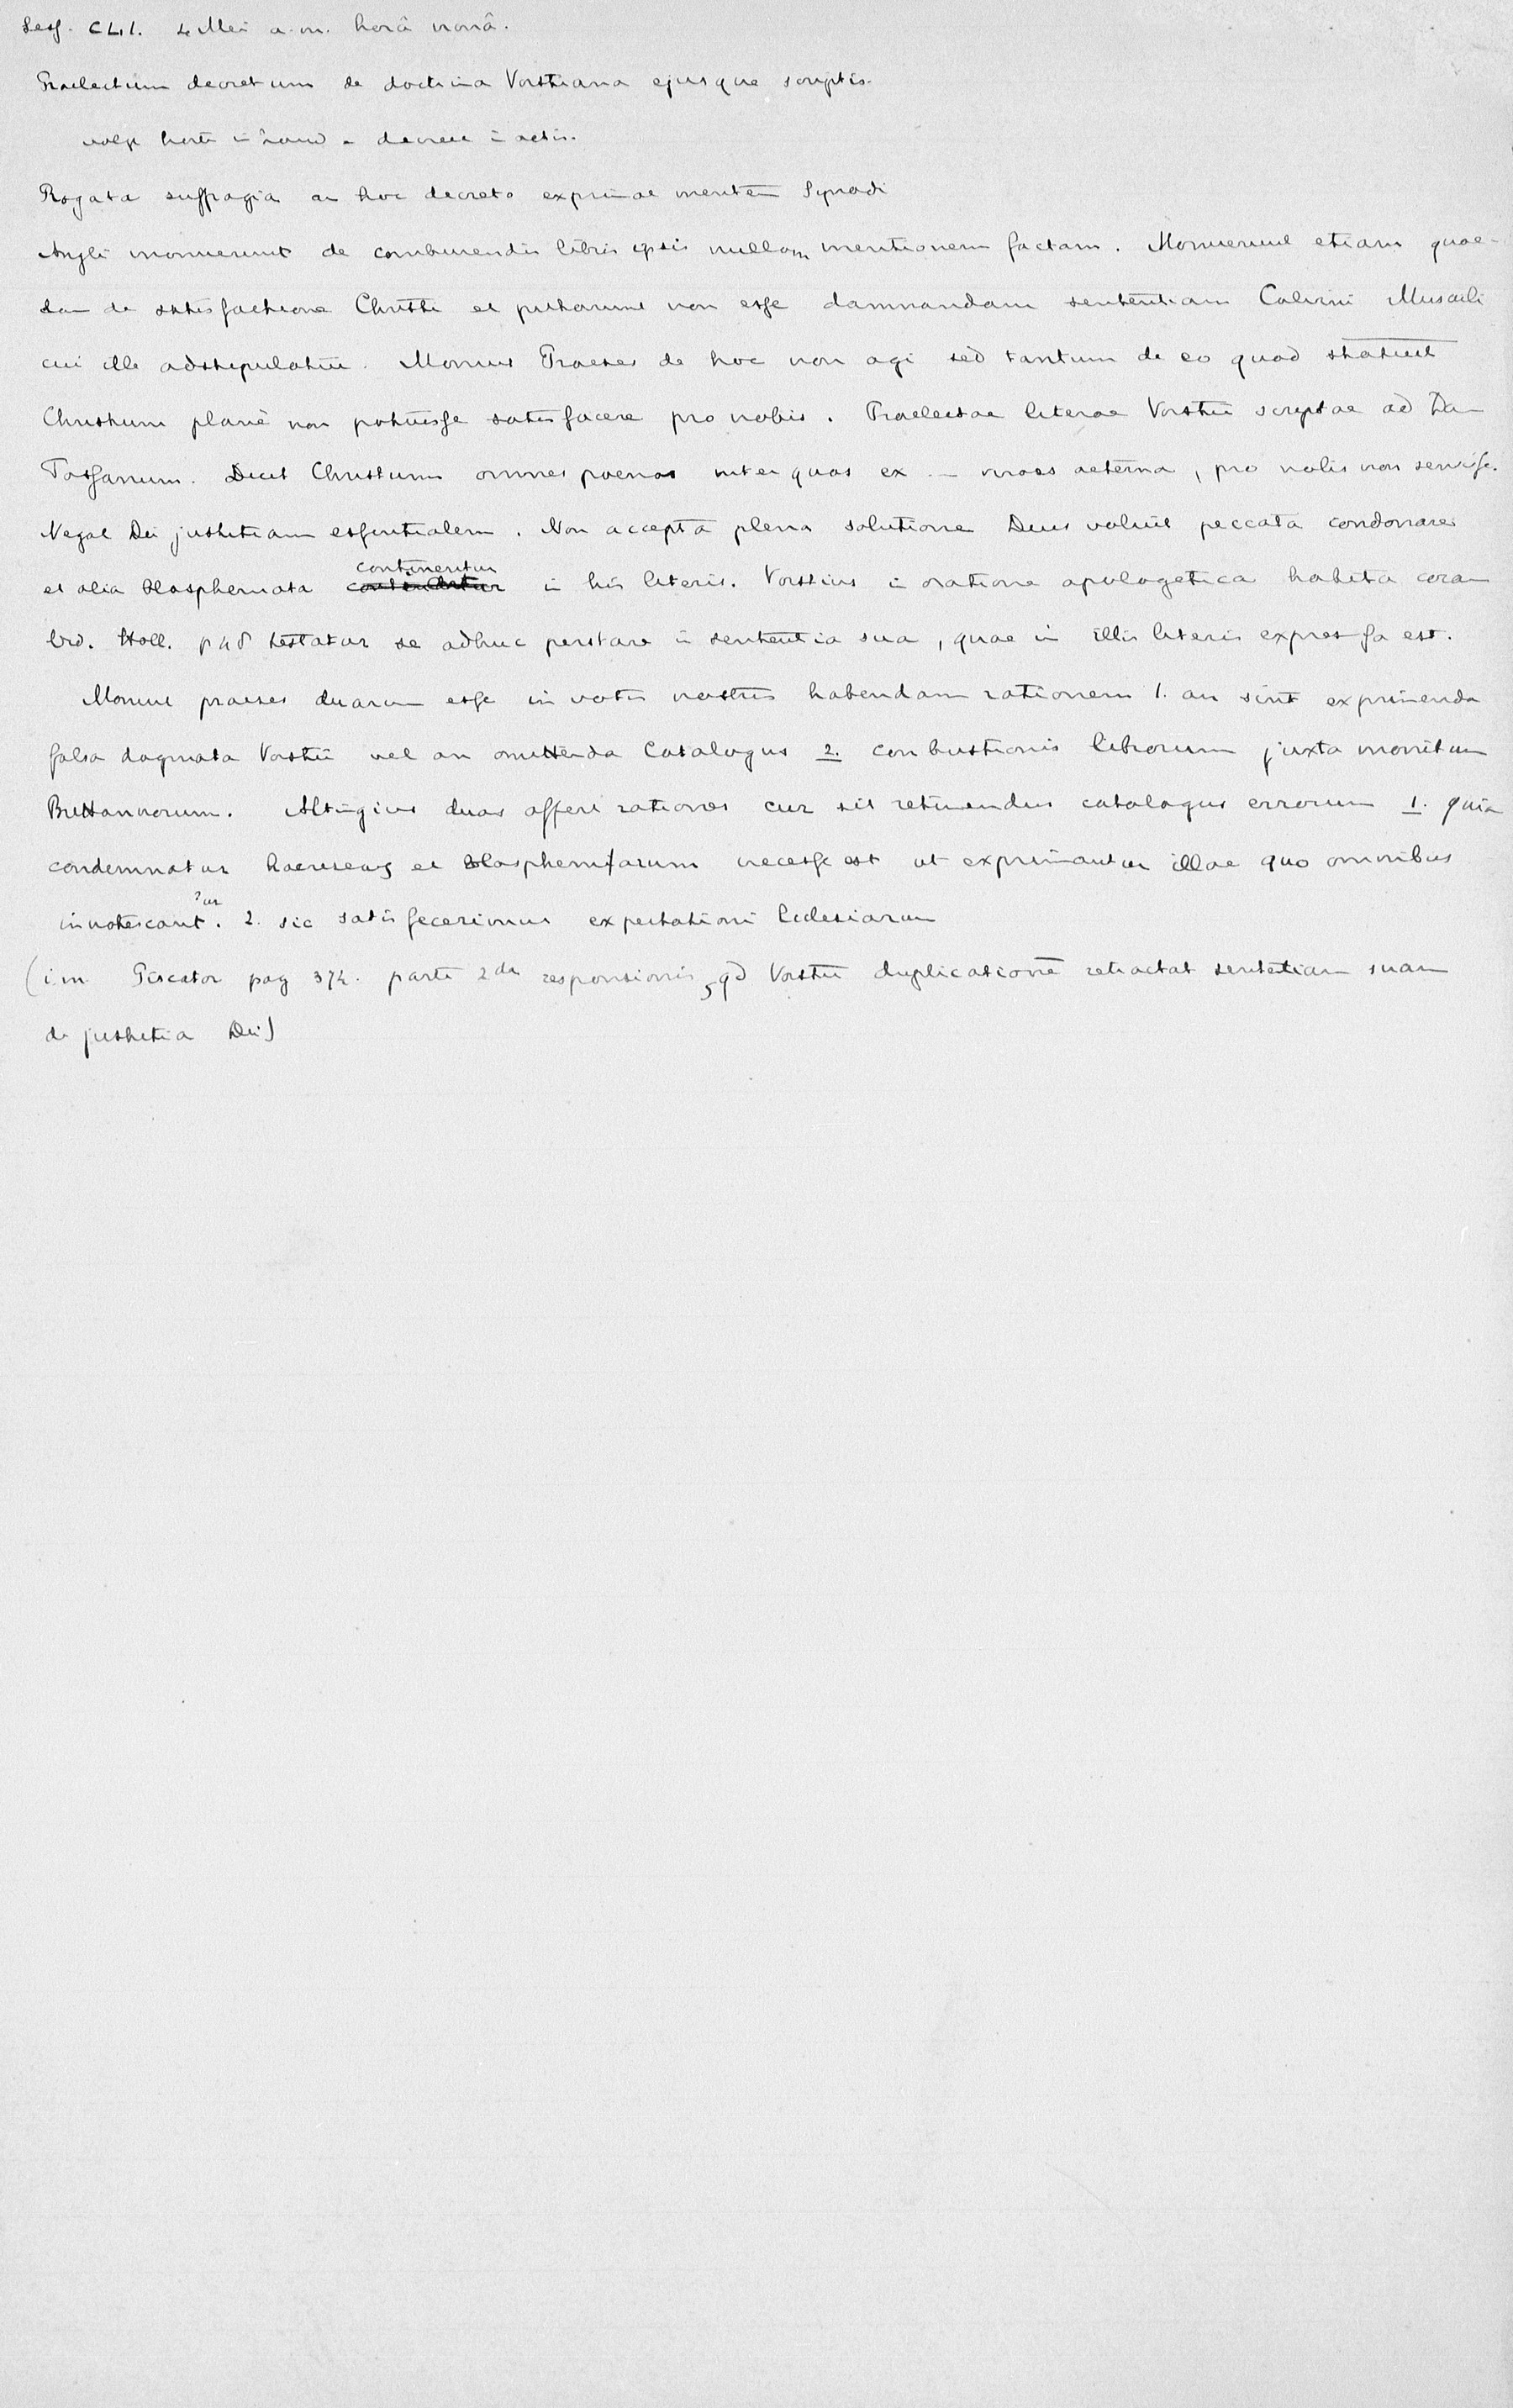 Sess. CLI. 4 Mei a.m. horâ nonâ.
Praelectum decretum de doctina Vorstiana ejusque scriptis.
volgt hierin in actis.
Rogata suffragia an hoc decreto exprimae mentem Synodi
Angli monuerunt de comburendis libris ipsis nullam mentionem factam. Monuerunt etiam quae-
dam de satisfactione Christi et putarunt non esse damnandam sententiam Calvini Musculi
cui ille adstipulatur. Monuit Praeses de hoc non agi sed tantum de eo quod statuit
Christum planè non potuisse satisfacere pro nobis. Praelectae literae Vorstii scriptae ad Da-
Tossanum. Dicit Christum omnes poenas inter quas ex — aeterna, pro nobis non
Negat Dei justitiam essentialem. Non accepta plena solutione Deus voluit peccata condonare
et alia blasphemata continentur in his literis. Vorstius in oratione apologetica habita coram
Ord. Holl. p 48 testatur se adhuc perstare in sententia sua, quae in illis literis expressa est.
Monuit praeses duarum esse in votis nostris habendam rationem 1. an sint exprimenda
falsa dogmata Vorstii vel an omittenda Catalogus 2. conbustionis librorum juxta monitum
Brittannorum. Altingius duas affert rationes cur sit retinendus catalogus errorum 1. quia
condemnatur haereseως et blasphemiarum necesse est ut exprimantur illae quo omnibus
innotescant. ?ur 2. sic satisfecerimus expectationi Ecclesiarum
(i.m. Piscator pag 374. parte 2da responsionis, qd Vorstii duplicationē retractat sententiam suam
de justitia Dei)